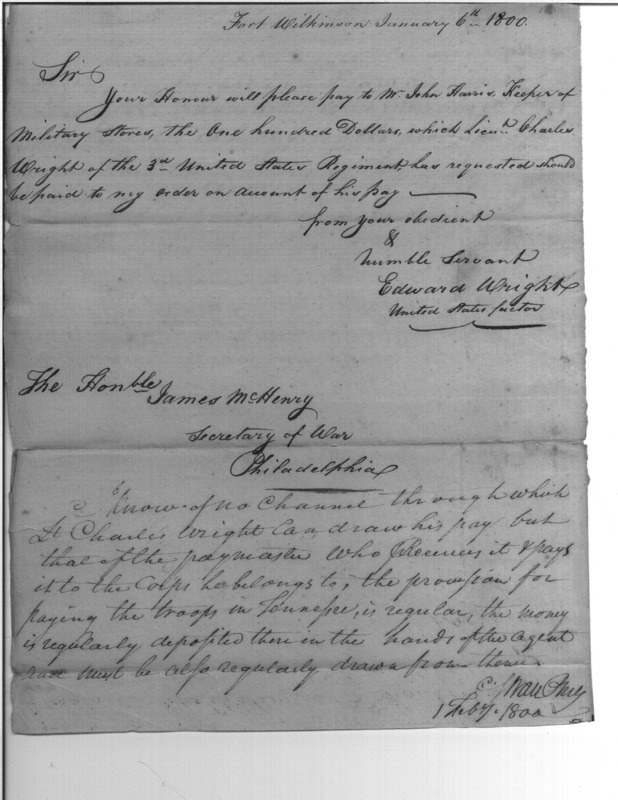 Fort Wilkinson January 6th 1800.
Sir
Your Honour will please pay to Mr. John Harris, Keeper of
Military Stores, the One hundred Dollars, which Lieut. Charles
Wright of the 3d United States Regiment, has requested should
be paid to my order on account of his pay
from your obedient
&
humble Servant
Edward Wright
United States factor
The Honble
James McHenry
Secretary of War
Philadelphia
I Know of no Channel through which
Lt Charles Wright Can draw his pay but
that of the paymaster who Receives it & pays
it to the Corps he belongs to; the provision for
paying the troops in Tennessee, is regular, the money
is regularly deposited there in the hands of the agent
and must be also regularly drawn from them
1 Feby. 1800